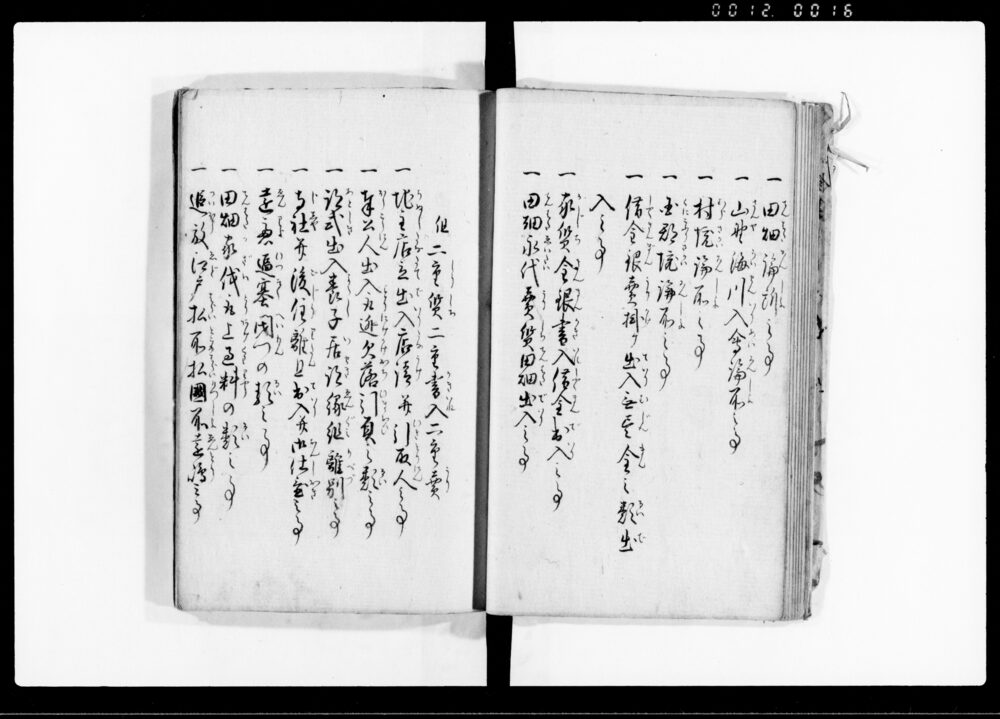 0012. 0016
一 田畑論所之事
一 山野海川入會論所之事
一 村境論所之事
一 国郡境論所之事
一 借金銀賣掛り出入之金之類出
入之事
一 家質金銀書入借金出入之事
一 田畑永代賣質田畑出入之事
但二重質二重書入二重賣
一 地主店立出入店請并引取人之事
一 奉公人出入欠落引負之類之事
一 跡式出入養子居跡縁組離別之事
一 寺社并後住離旦出入并之事
一 逼塞閉門の類之事
一 田畑家代取上過料の類之事
一 追放江戸払所払國所之事